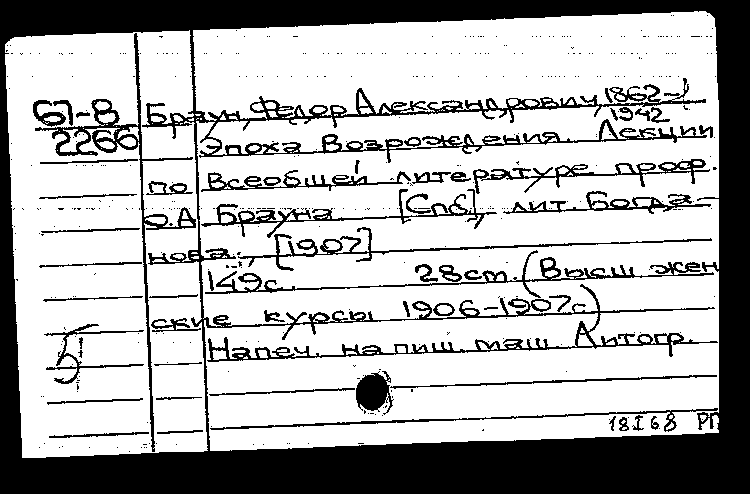 67-8 Браун, Федор Александрович, 1862-1942
2266 Эпоха Возрождения. Лекции
по Всеобщей литературе проф.
Ф.А Брауна. [Спб], лит. Богда-
нова, [1907]
149с. 28cm. (Высш жен
ские курсы 1906-1907г.)
5 Напеч. на пиш. маш Литогр.
18 I 68